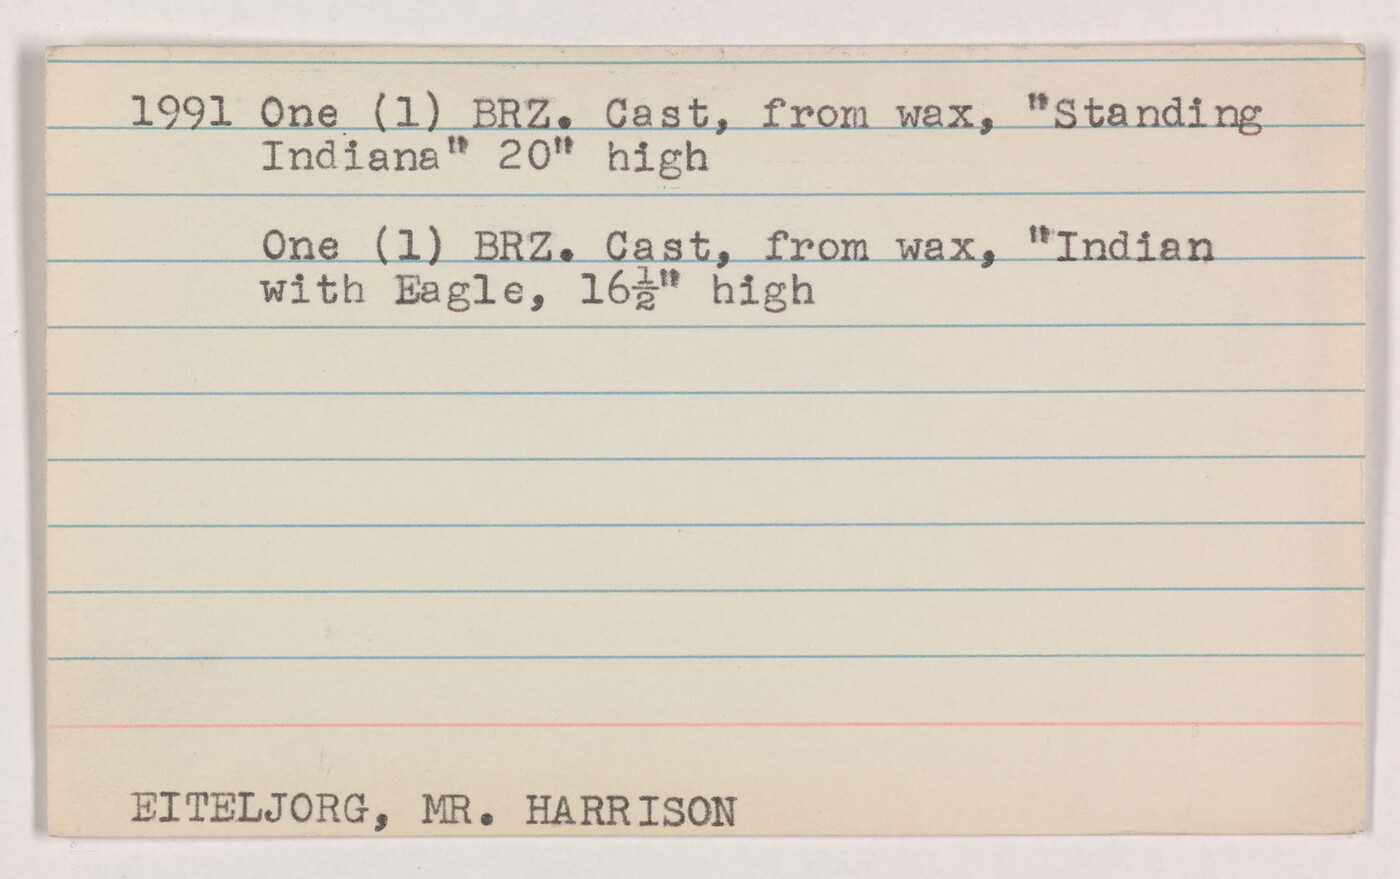 1991 One (1) BRZ. Cast, from wax, "Standing
Indiana" 20" high
One (1) BRZ. Cast, from wax, "Indian
with Eagle, 16½" high
EITELJORG, MR. HARRISON